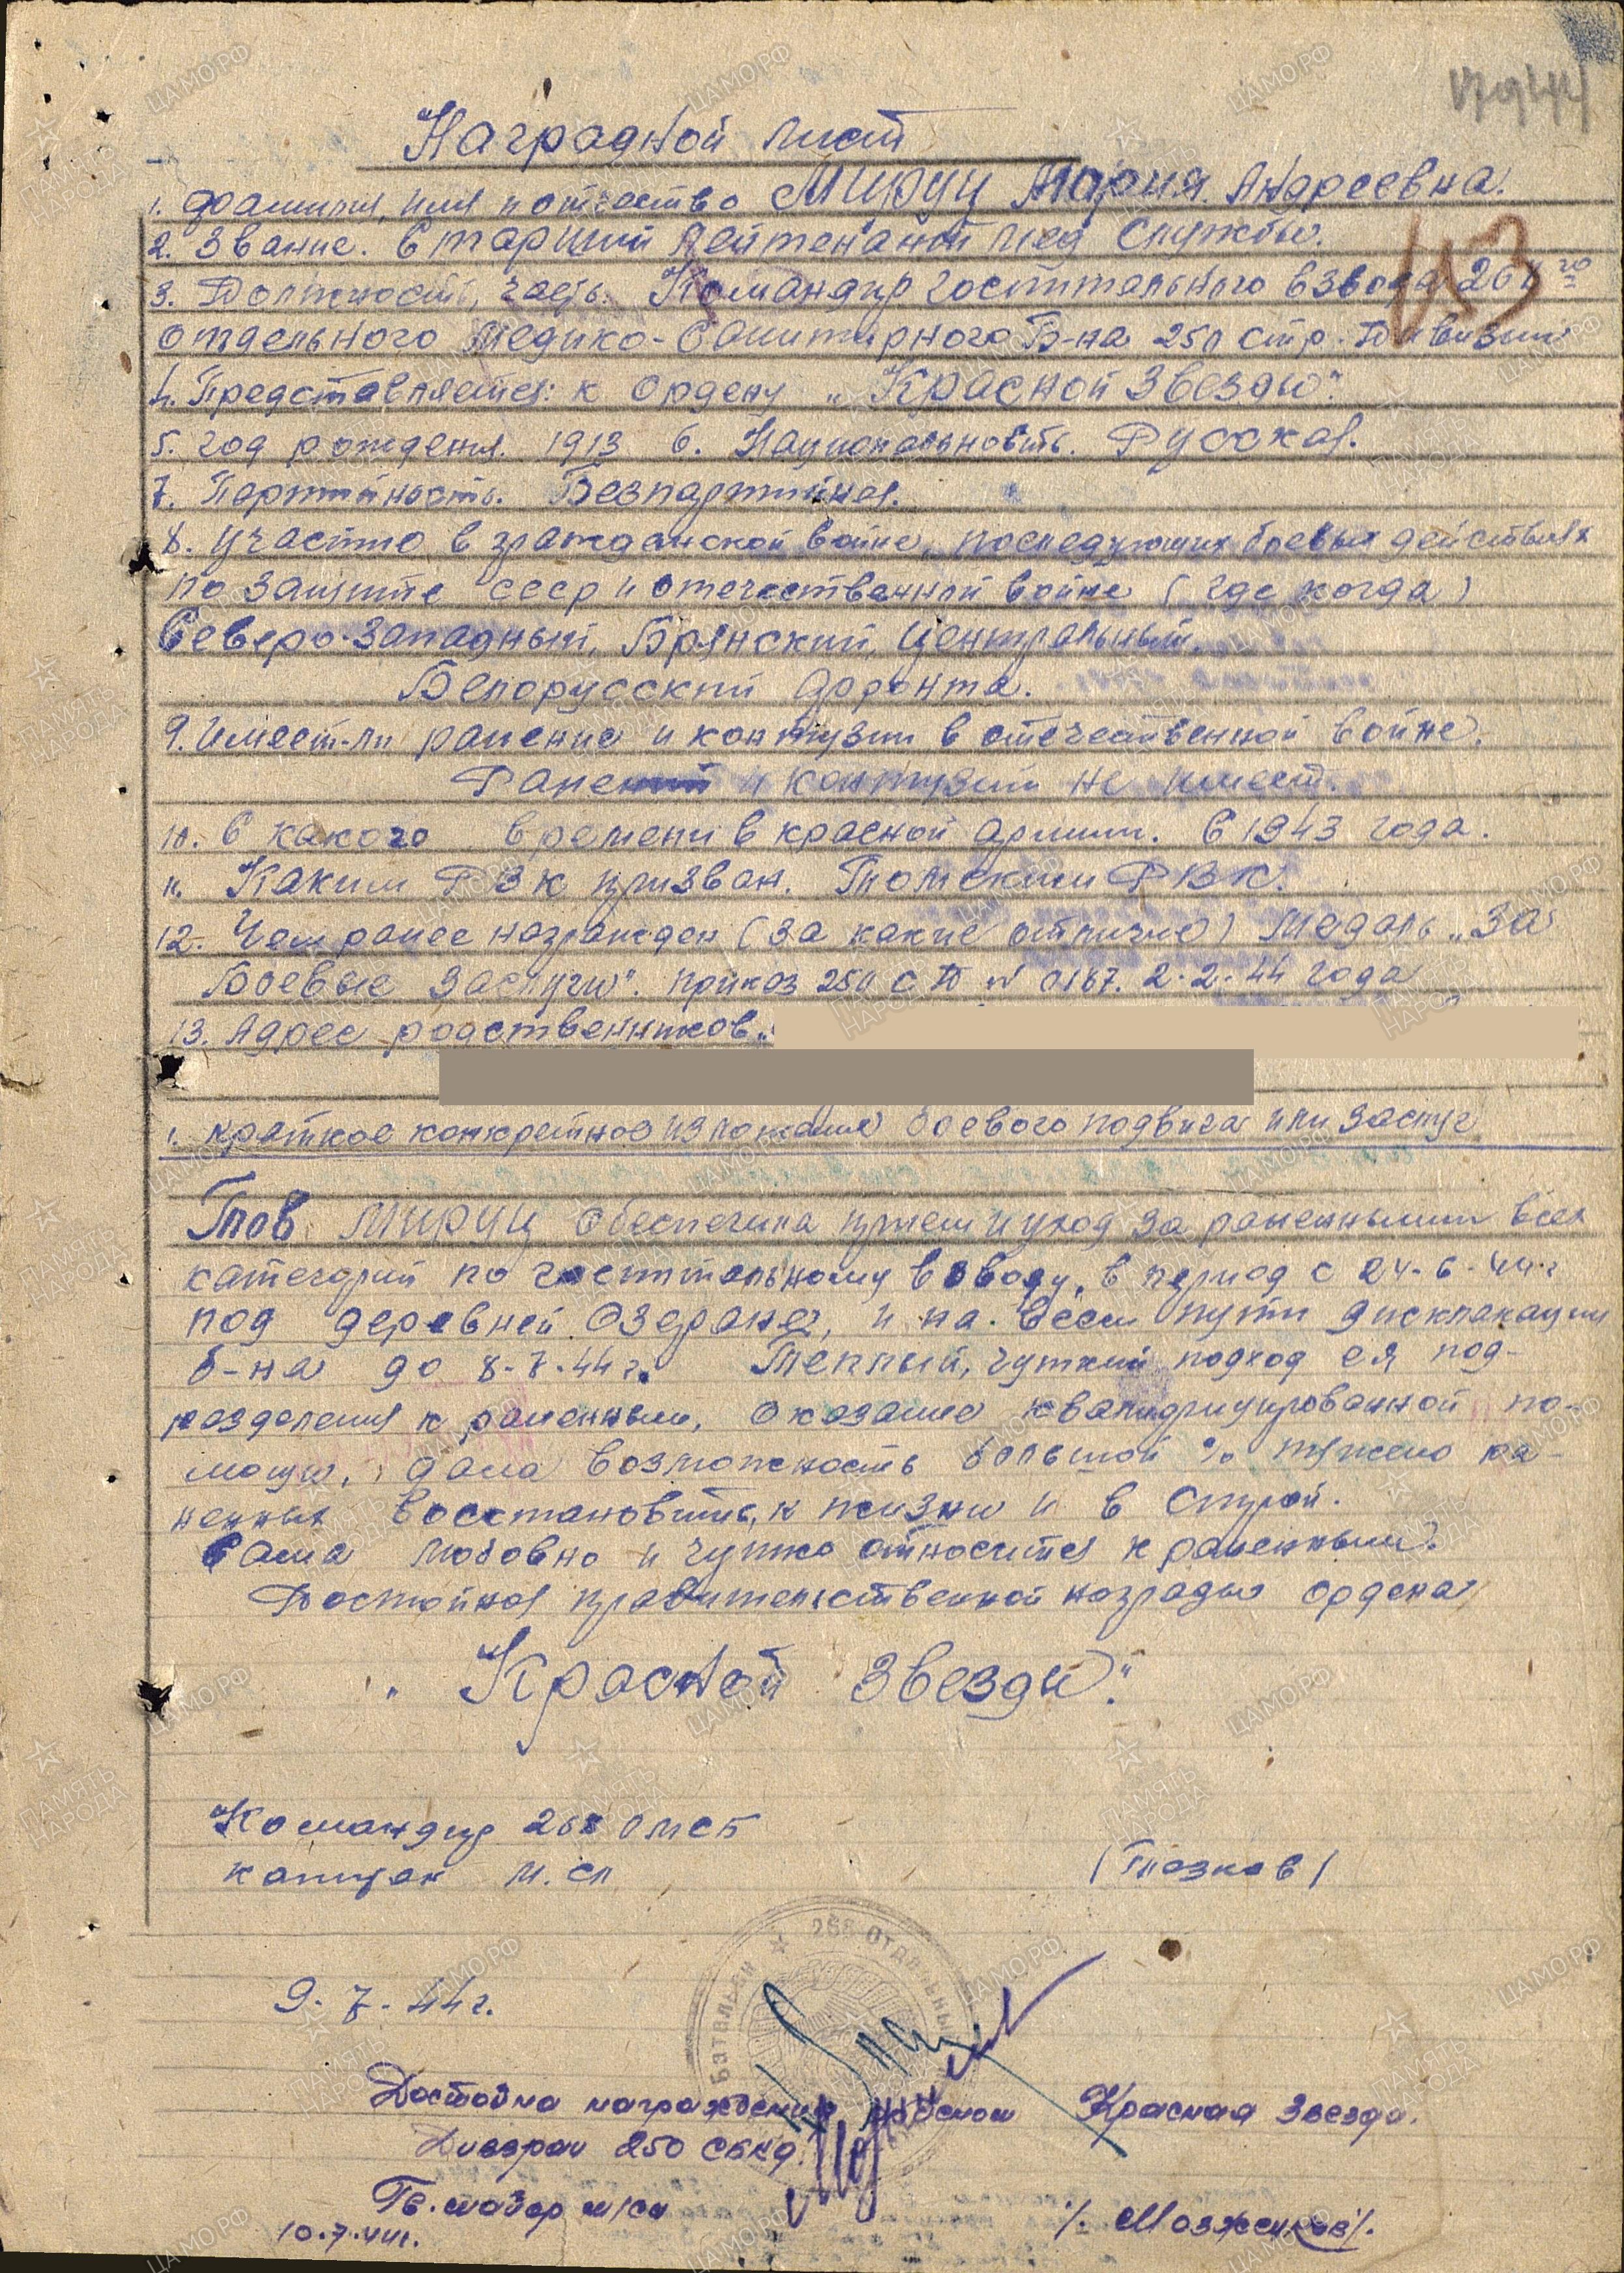 Наградной лист
1. Фамилия, имя и отчество Мируц Мария Андреевна.
2. Звание. Старший лейтенаной мед службы.
3. Должность, часть. Командир госпитального взвода 268го
отдельного Медико-Санитарного Б-на 250 стр. Дивизии
4. Представляется: к ордену „Красной Звезды".
5. год рождения. 1913 6. Национальность. Русская.
7. Партийность. Безпартийная.
8. участие в гражданской войне, последующих боевых действиях
по защите СССР и отечественной войне (где когда)
Северо-Западный, Брянский, Центральный,
Белорусский фронта.
9. Имеет-ли ранение и контузии в отечественной войне.
Ранений и контузии не имеет.
10. С какого времени в красной армии. С 1943 года.
11. Каким РВК призван. Томским РВК.
12. Чем ранее награжден (за какие отличие) Медаль „За
Боевые заслуги". приказ 250 СД № 0187. 2.2.44 года
13. Адрес родственников „
1. краткое конкретное изложение боевого подвига или заслуг
Тов Мируц обеспечила прием и уход за раненными всех
категорий по госпитальному взводу, в период с 24-6-44 г
под деревней Озеране, и на всем пути дисклакации
б-на до 8-7-44 г. Теплый, чуткий подход ея под-
разделения к раненным, оказание квалифицированной по-
мощи, дала возможность большой % тяжело ра-
ненных восстановить, к жизни и в строй.
Сама любовно и чутко относится к раненным.
Достойная правительственной награды ордена
„Красной Звезды".
Командир 268 ОМСБ
капитан м. сл (Глазков)
268 ОТДЕЛЬНЫ
БАТАЛЬОН
9.7.44 г.
Достойна награждения орденом Красная Звезда.
Дивврач 250 СБКД.
Гв. майор м/сл /. Мозженков/.
10.7.44г.